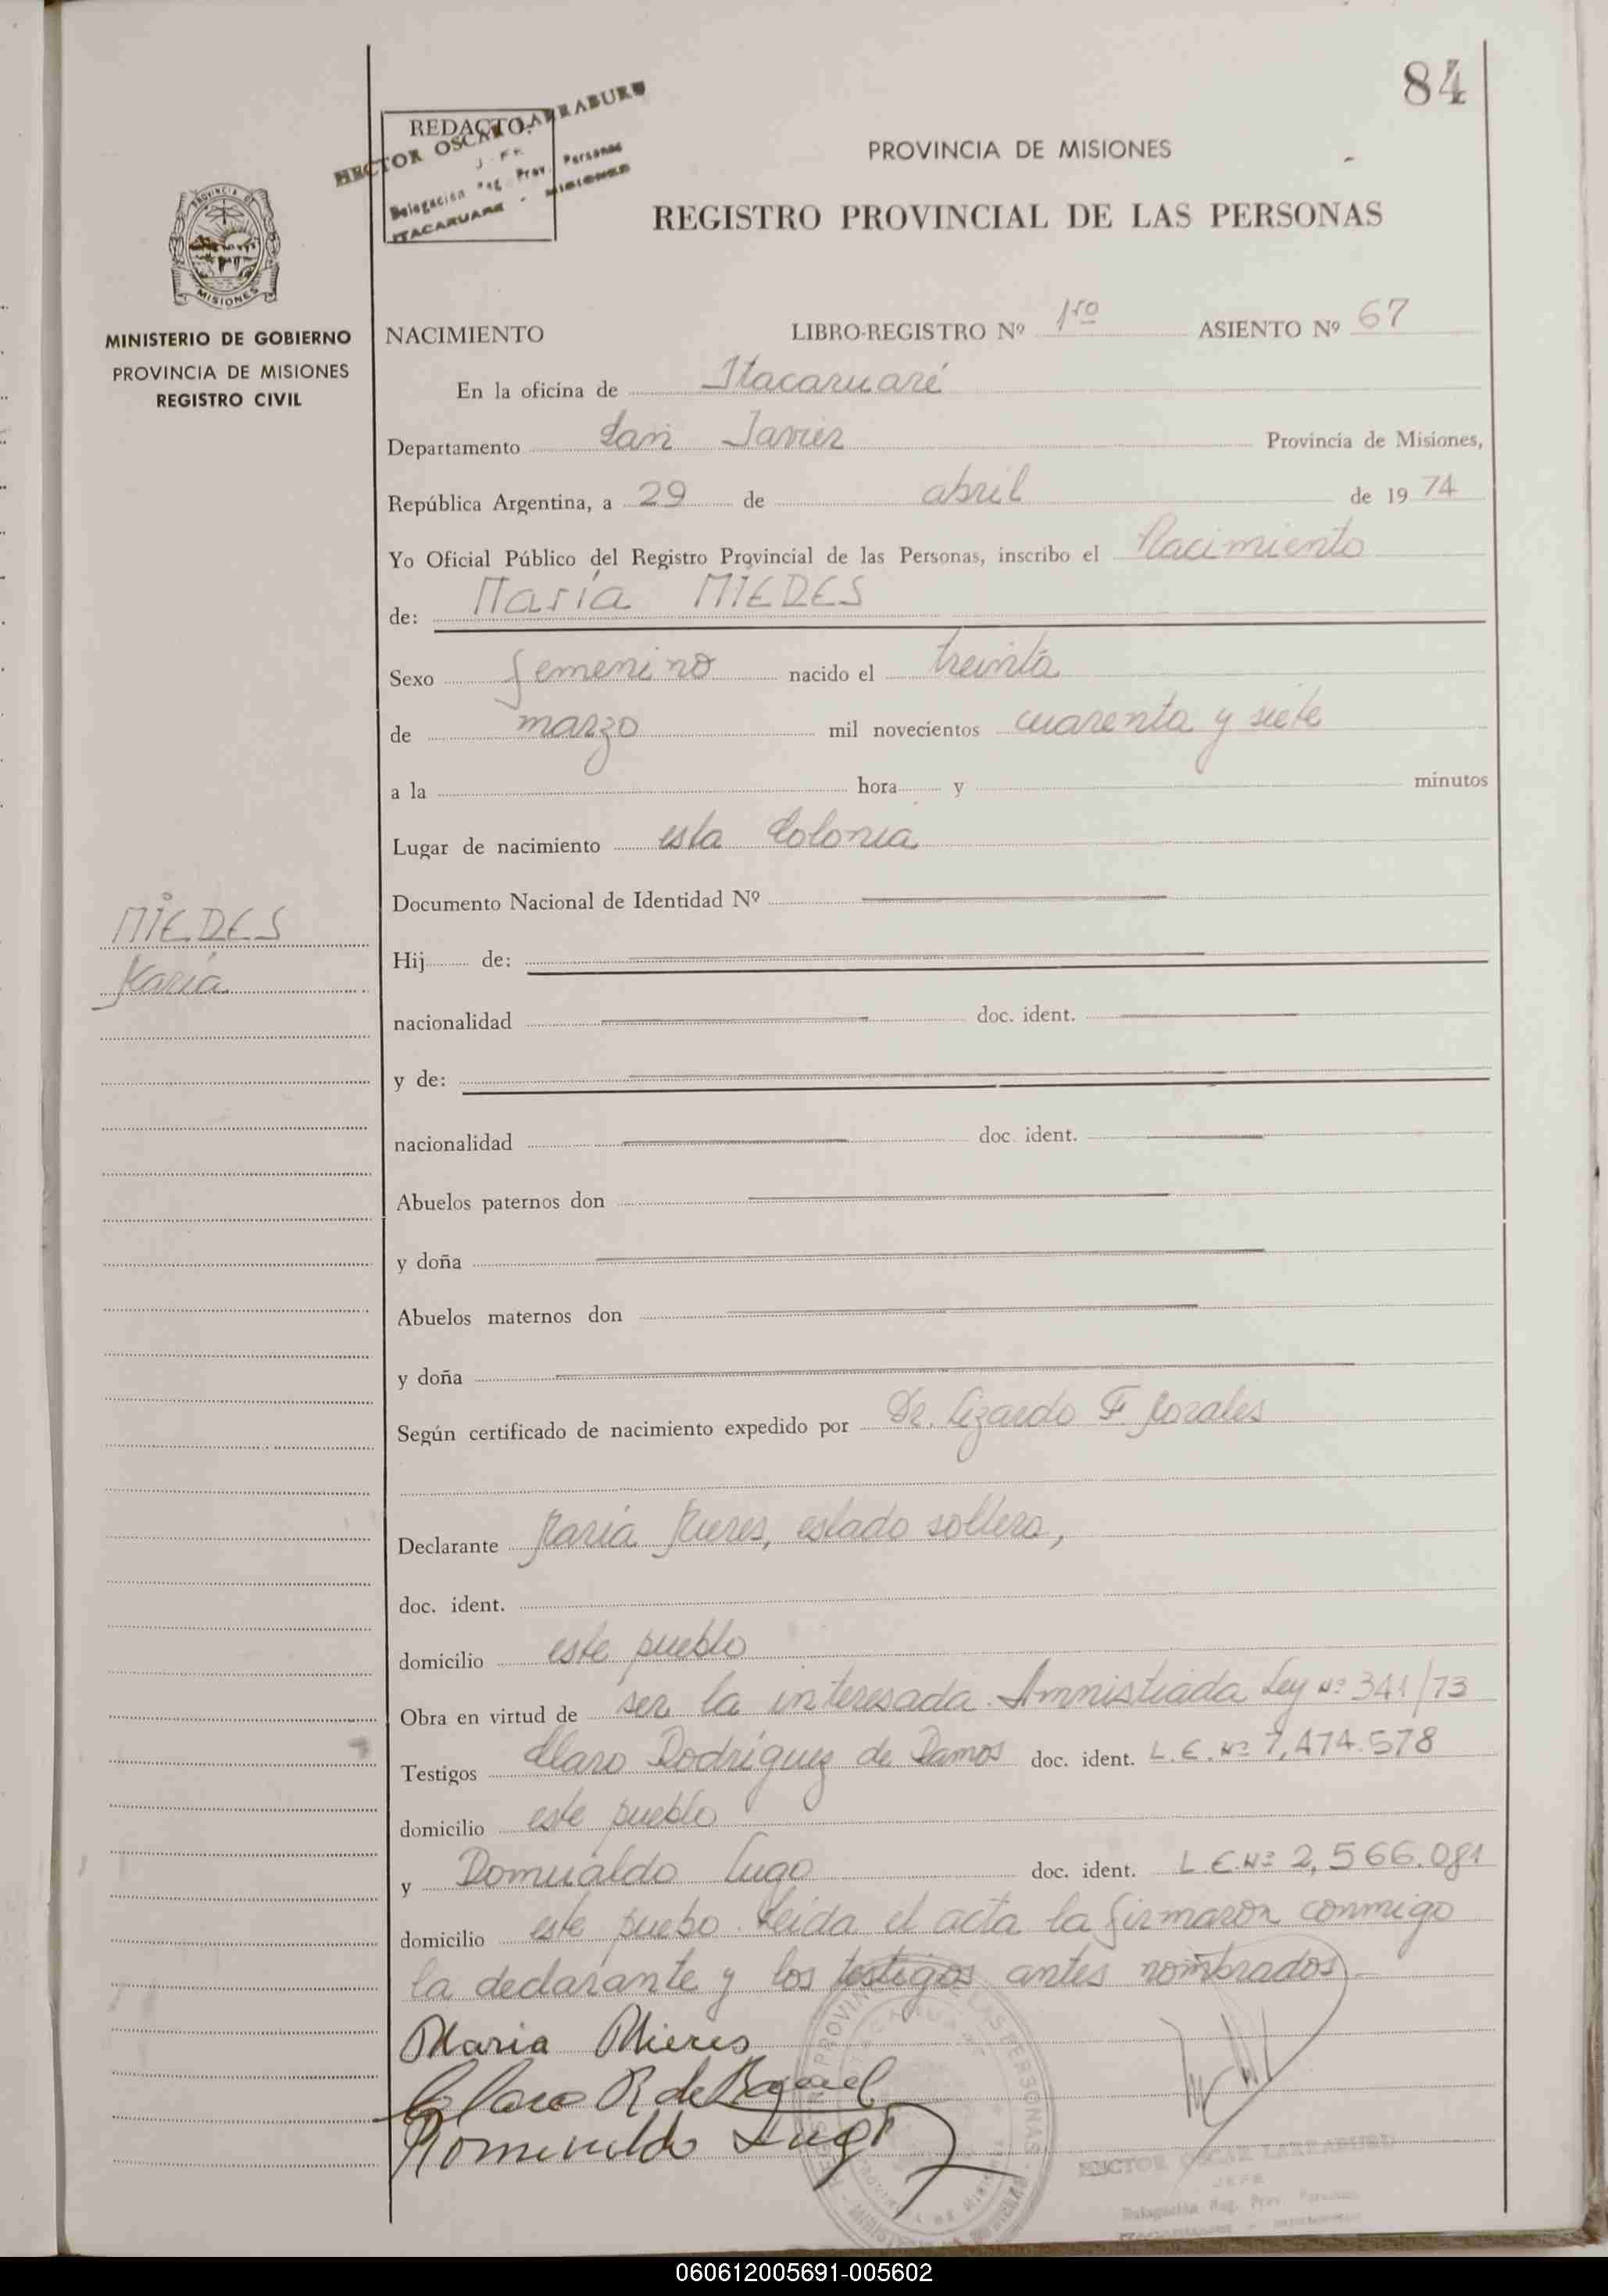 84
REDACTO:
HECTOR OSCAR LARRABURU
JEFE
Delegación Reg. Prov. Personas
ITACARUARE - MISIONES
PROVINCIA DE MISIONES
REGISTRO PROVINCIAL DE LAS PERSONAS
PROVINCIA DE
MISIONES
MINISTERIO DE GOBIERNO
PROVINCIA DE MISIONES
REGISTRO CIVIL
NACIMIENTO LIBRO-REGISTRO Nº 1ro ASIENTO Nº 67
En la oficina de Itacaruaré
Departamento San Javier Provincia de Misiones,
República Argentina, a 29 de abril de 1974
Yo Oficial Público del Registro Provincial de las Personas, inscribo el Nacimiento
de: María MIERES
Sexo femenino nacido el treinta
de marzo mil novecientos cuarenta y siete
a la hora y minutos
Lugar de nacimiento esta Colonia
Documento Nacional de Identidad Nº
MIERES
María
Hij de:
nacionalidad doc. ident.
y de:
nacionalidad doc. ident.
Abuelos paternos don
y doña
Abuelos maternos don
y doña
Según certificado de nacimiento expedido por Dr. Lizardo F.
Declarante María Mieres, estado soltera,
doc. ident.
domicilio este pueblo
Obra en virtud de ser la interesada. Amnistiada Ley Nº 341/73
Testigos Claro Rodríguez de Ramos doc. ident. L.E. Nº 7,474.578
domicilio este pueblo
y Romualdo Lugo doc. ident. L.E. Nº 2,566.081
domicilio este puebo. Leida el acta la firmaron conmigo
la declarante y los testigos antes nombrados
Maria Mieres
Claro R de
Romualdo Lugo
HECTOR OSCAR LARRABURU
JEFE
Delegación Reg. Prov. Personas
060612005691-005602